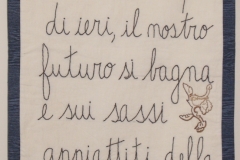 di ieri, il nostro
futuro si bagna
e sui sassi
appiattiti dalla